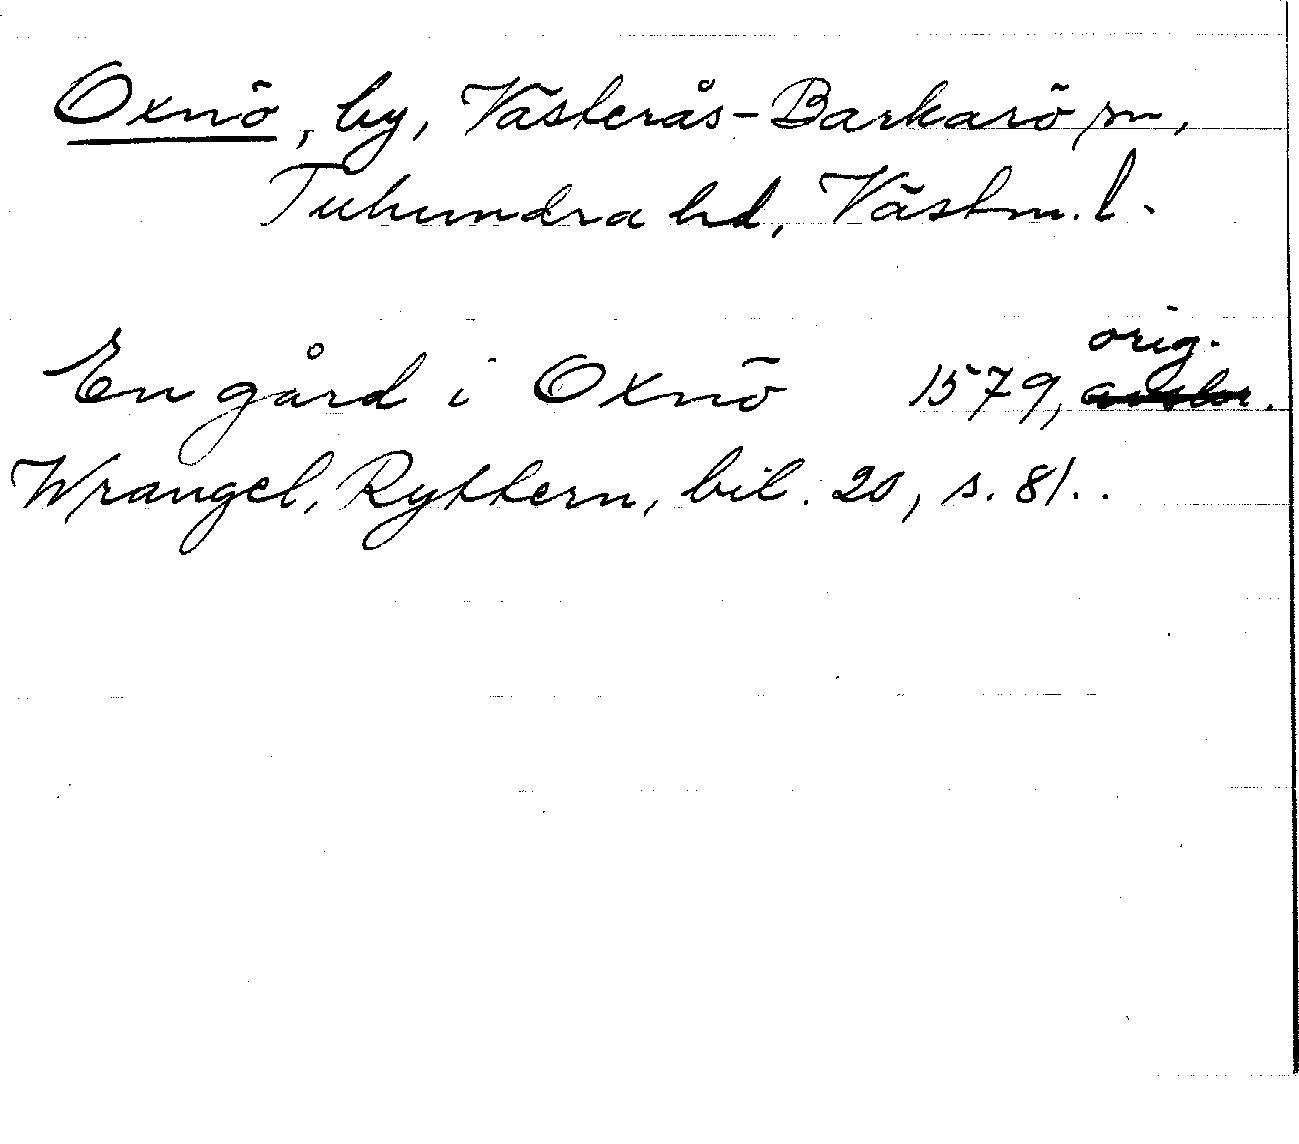 Oxnö, by, Västerås-Barkarö sn,
Tuhundra hd, Västm. l.
orig.
En gård i Oxnö 1579,
Wrangel, Ryttern, bil. 20, s. 81..